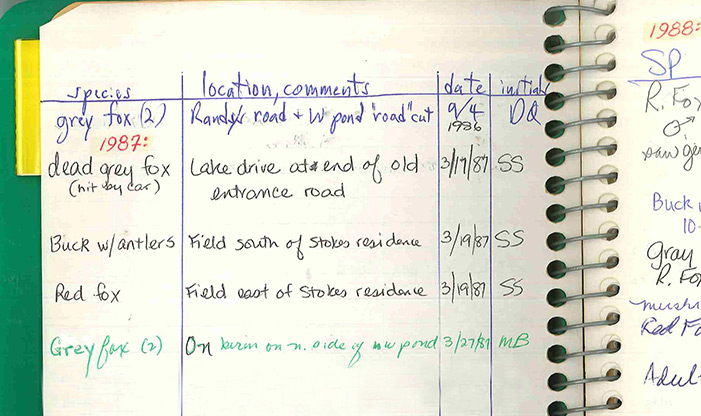 species location, comments date initials
grey fox (2) Randy's road + W pond "road" cut 9/4 1986 DQ
1987:
dead grey fox Lake drive at end of old 3/17/87 SS
(hit by car) entrance road
Buck w/antlers Field south of Stokes residence 3/19/87 SS
Red fox Field east of Stokes residence 3/19/87 SS
Grey fox (2) On berm on n. side of nw pond 3/27/87 MB
1988:
SP
R. Fox
♂
saw
Buck
10-
gray
R. Fox
Red Fo
Adul